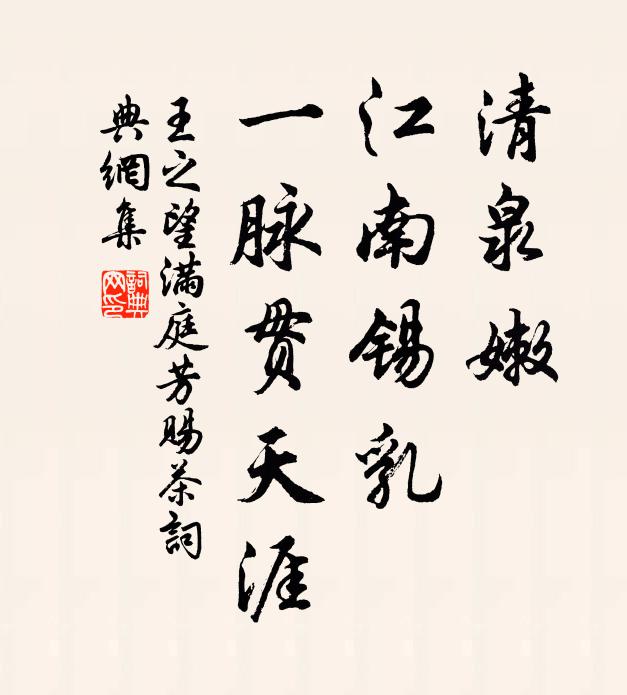 清泉嫩
江南锡乳
一脉贯天涯
王之望满庭芳賜茶詞
典網集
詞典網印